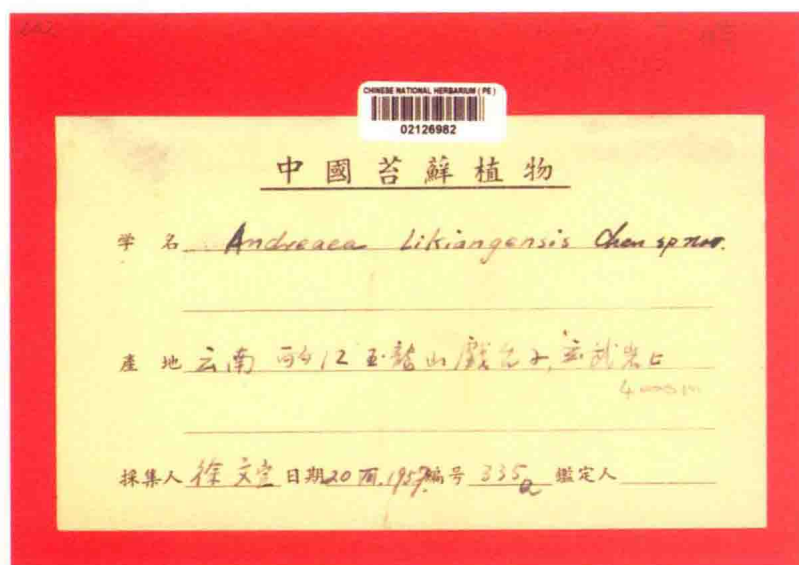 CHINESE NATIONAL HERBARIUM (PE)
02126982
中國苔蘚植物
学名 Andreaea Likiangensis Chen sp nov.
產地 云南 丽江玉龍山 玄武岩上
4000m
採集人 徐文宣 日期 20 VII. 1957. 編号 335a 鑑定人